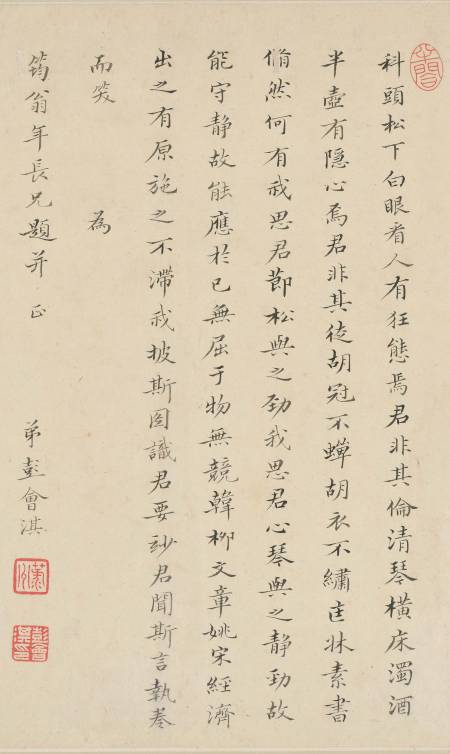 科頭松下白眼看人有狂態焉君非其倫清琴橫床濁酒
半壺有隱心焉君非其徒胡冠不蟬胡衣不繡匡牀素書
翛然何有我思君節松與之勁我思君心琴與之靜勁故
能守靜故能應於已無屈于物無競韓柳文章姚宋經濟
出之有原施之不滯我披斯圖識君要玅君聞斯言執卷
而笑　為
筠翁年長兄題并　正
弟彭會淇
彭會淇印